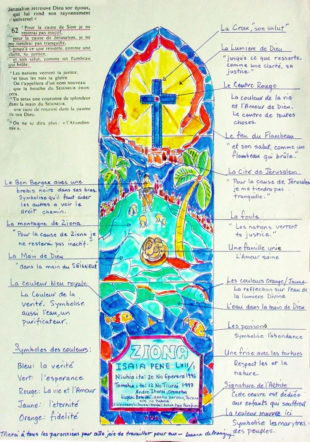 Jérusalem retrouve Dieu son époux,
qui lui rend son rayonnement
universel
"Pour la cause de Sion je ne
resterai pas inactif,
pour la cause de Jérusalem, je ne
me tiendrai pas tranquille,
jusqu'à ce que ressorte, comme
une clarté, sa justice,
et son salut, comme un flambeau
qui brûle.
"Les nations verront ta justice,
et tous les rois ta gloire.
On t'appellera d'un nom nouveau
que la bouche du SEIGNEUR
"Tu seras une couronne de splendeur
dans la main du SEIGNEUR,
une tiare de royauté dans la
de ton Dieu.
"On ne te dira plus: «L'Abandon-
née»,
La Croix, "son salut"
La Lumière de Dieu
"jusqu'à ce que ressorte,
comme une clarté, sa
justice."
Le Centre Rouge
La couleur de la vie
et l'Amour de Dieu.
Le centre de toutes
choses.
Le feu du Flambeau
"et son salut, comme un
flambeau qui brûle."
La Cité de Jérusalem
"Pour la cause de Jérusalem
je ne me tiendrai pas
tranquille."
La foule
"Les nations verront
ta justice."
Une famille unie
L'Amour saine
Les couleurs Orange/Jaune
La réflection sur l'eau de
la lumière Divine
L'eau dans la main de Dieu
Les poissons
Symbolise l'abondance
Une frise avec les tortues
Respect les et la
nature.
Signature de l'Artiste
Cette œuvre est dédiée
aux enfants qui souffrent
La couleur mauve ici
Symbolise les martyres
des peuples.
Le Bon Berger avec une
brebis noire dans ses bras
Symbolise qu'il faut aider
les autres à voir le
droit chemin.
La montagne de Ziona
"Pour la cause de Ziona je
ne resterai pas inactif."
La Main de Dieu
"dans la main du SEIGNEUR
La couleur bleu royale
La Couleur de la
vérité. Symbolise
aussi l'eau, un
purificateur.
Symboles des couleurs:
Bleu: la vérité
Vert: l'espérance
Rouge: La vie et l'Amour
Jaune: l'éternité
Orange: fidélité
ZIONA
ISAIA PENE LXII/1